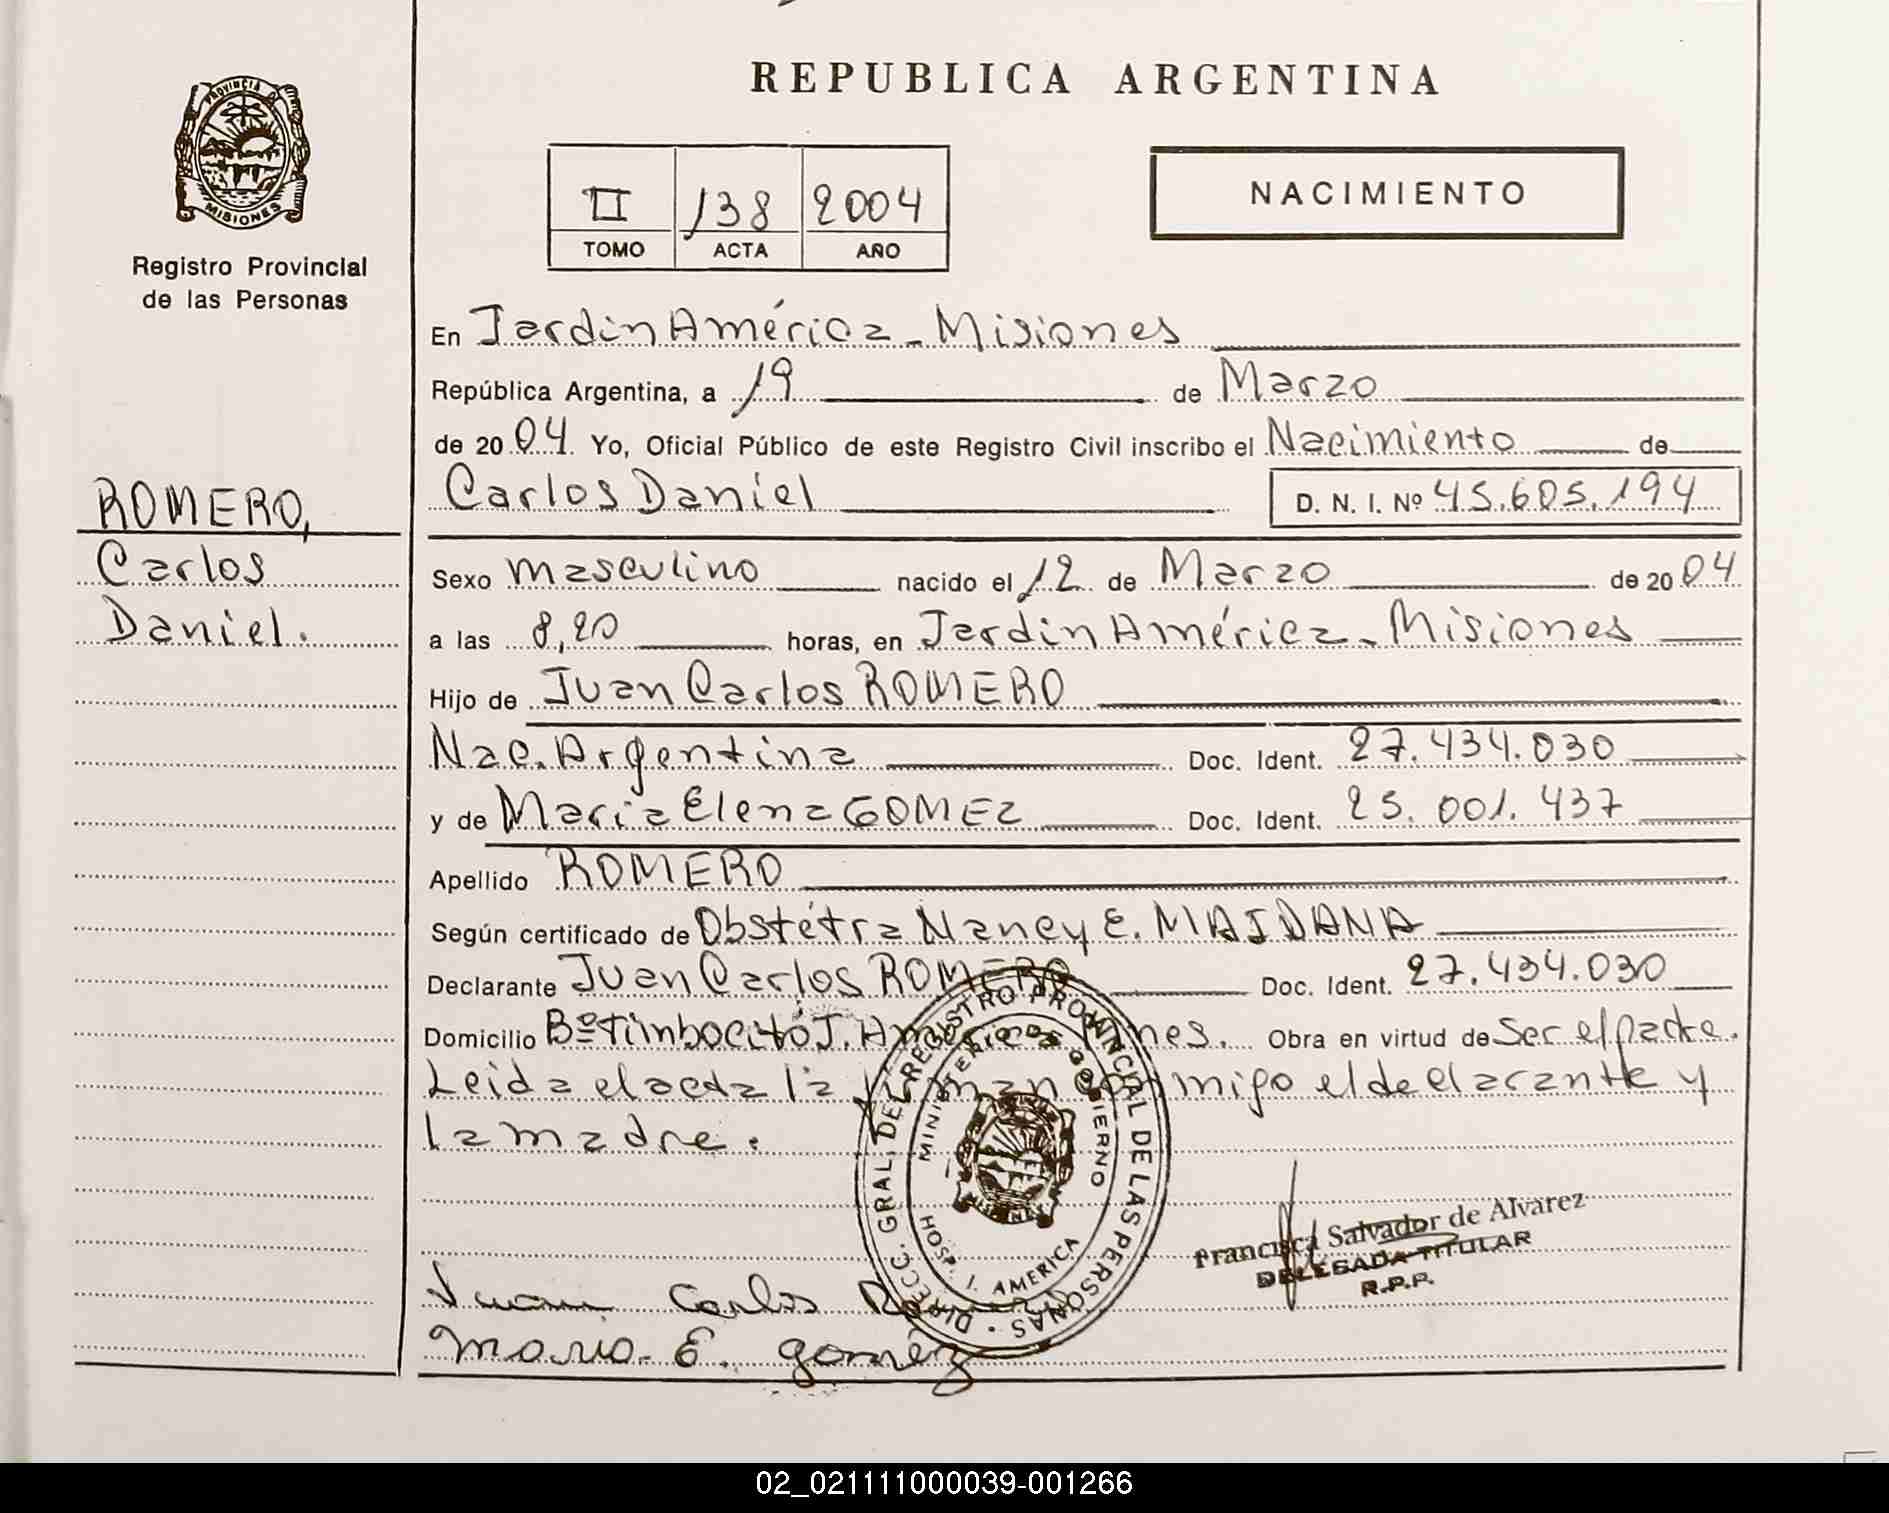 REPUBLICA ARGENTINA
PROVINCIA DE
MISIONES
Registro Provincial
de las Personas
II 138 2004
TOMO ACTA AÑO
NACIMIENTO
ROMERO,
Carlos
Daniel.
En Jardin América - Misiones
República Argentina, a 19 de Marzo
de 2004. Yo, Oficial Público de este Registro Civil inscribo el Nacimiento de
Carlos Daniel D. N. I. Nº 45.605.194
Sexo masculino nacido el 12 de Marzo de 2004
a las 8,20 horas, en Jardin América - Misiones
Hijo de Juan Carlos ROMERO
Nac. Argentina Doc. Ident. 27.434.030
y de Maria Elena GOMEZ Doc. Ident. 25.001.437
Apellido ROMERO
Según certificado de Obstétra Nancy E. MAIDANA
Declarante Juan Carlos ROMERO Doc. Ident. 27.434.030
Domicilio Bº Timbocitó J. América Obra en virtud de Ser el padre.
Leida el acta la firman conmigo el declarante y
la madre.
DIRECC. GRAL. DEL REGISTRO PROVINCIAL DE LAS PERSONAS
MINISTERIO DE GOBIERNO
MISIONES
HOSP. J. AMERICA
Francisca Salvador de Alvarez
DELEGADA TITULAR
R.P.P.
Juan Carlos Romero
Maria E. gomez
02_021111000039-001266